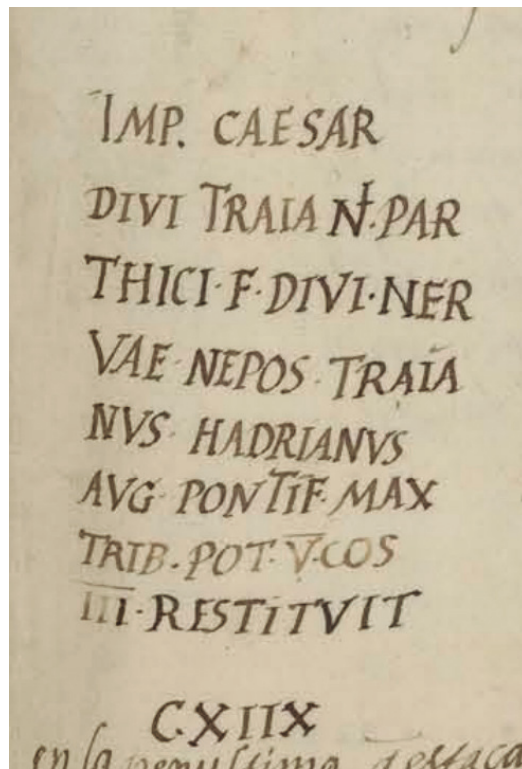 IMP. CAESAR
DIVI TRAIANI·PAR
THICI·F·DIVI·NER
VAE·NEPOS·TRAIA
NVS·HADRIANVS
AVG·PONTIF·MAX
TRIB·POT·V·COS
III·RESTITVIT
CXIIX
en la penultima